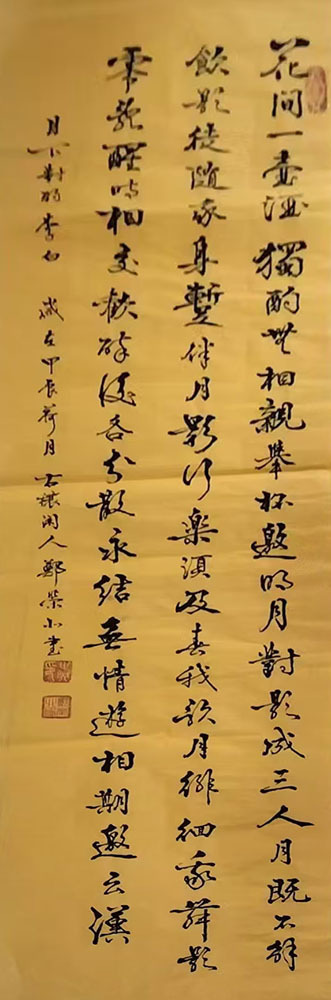 花间一壺酒獨酌無相親舉杯邀明月對影成三人月既不解
飲影徒隨我身暫伴月影行樂須及春我歌月徘徊我舞影
零亂醒時相交歡醉後各分散永結無情遊相期邈云漢
月下對酌李白 歲在甲辰荷月 闲人鄭榮小書